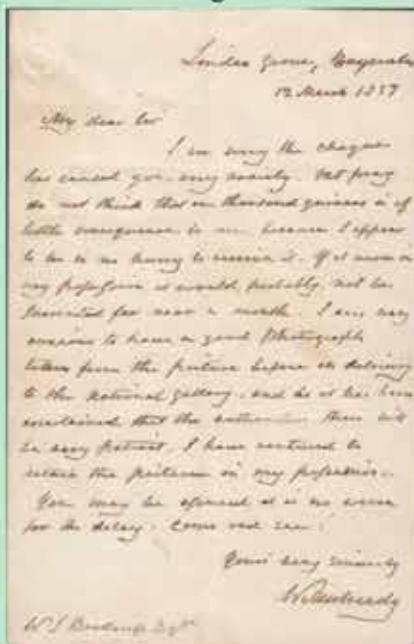 Linden Grove, Bayswater
12 March 1857
My dear Sir
I am sorry the cheque
has caused you any anxiety. But pray
do not think that one thousand guineas is of
little consequence to me because I appear
to be in no hurry to receive it. If it were in
my possession it would probably not be
for near a month. I am very
anxious to have a good Photograph
taken from the picture before its delivery
to the National Gallery, and as it has been
that the authorities there will
be very patient, I have ventured to
retain the picture in my possession.
You may be assured it is no worse
for the delay. Come and see!
Yours very sincerely
W Mulready
W. S. Esqre